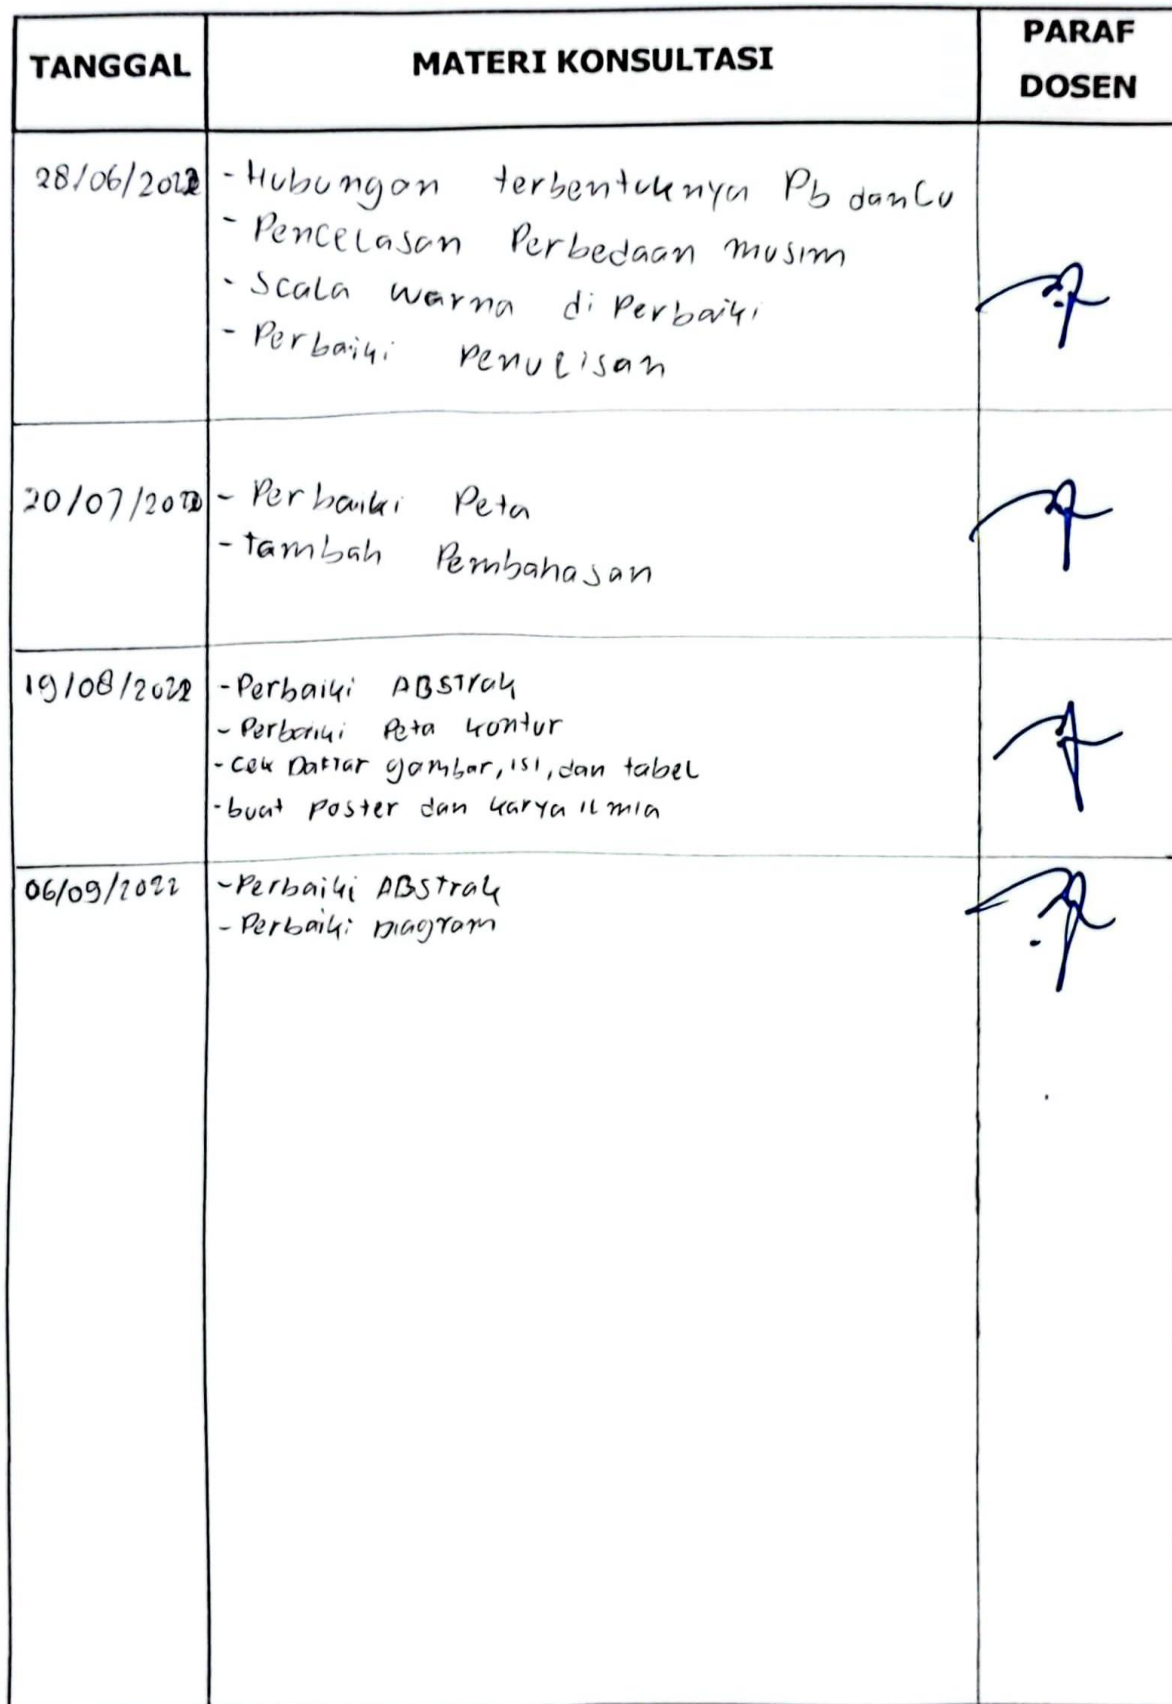 TANGGAL MATERI KONSULTASI PARAF DOSEN
28/06/2022 - Hubungan terbentuknya Pb dan Cu
- Pencelasan Perbedaan musim
- Scala warna di Perbaiki
- Perbaiki Penulisan
20/07/2022 - Perbaiki Peta
- tambah Pembahasan
19/08/2022 - Perbaiki ABSTrak
- Perbaiki Peta kontur
- cek Daftar gambar, isi, dan tabel
- buat Poster dan karya ilmia
06/09/2022 - Perbaiki ABSTrak
- Perbaiki Diagram